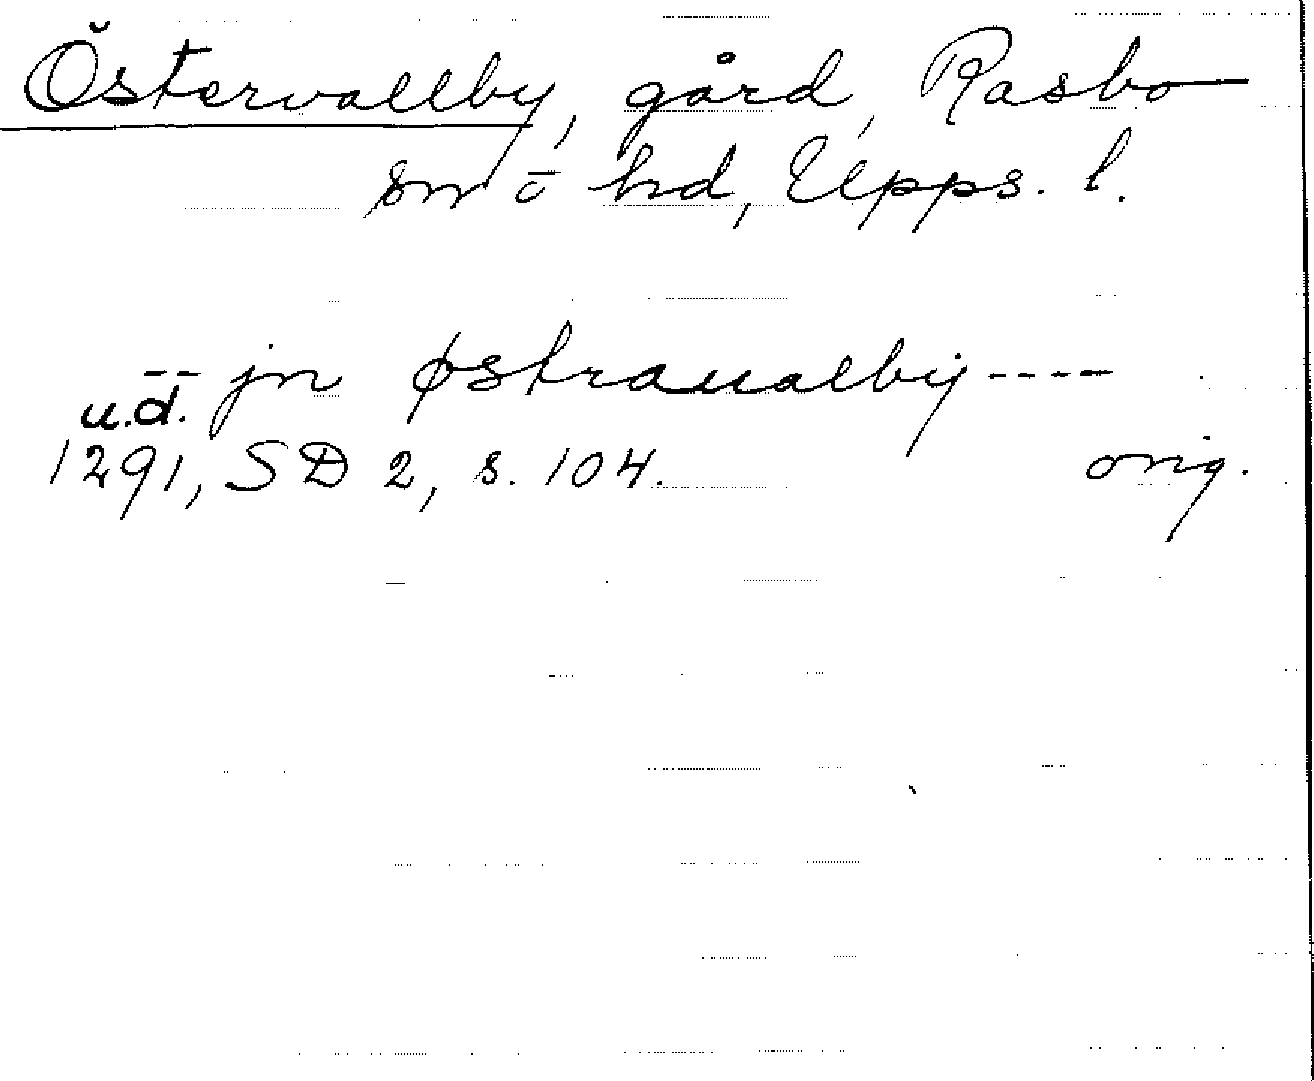 Östervallby, gård, Rasbo
sn o hd, Upps. l.
-- jn østraualby ----
u.d.
1291, SD 2, s. 104. orig.